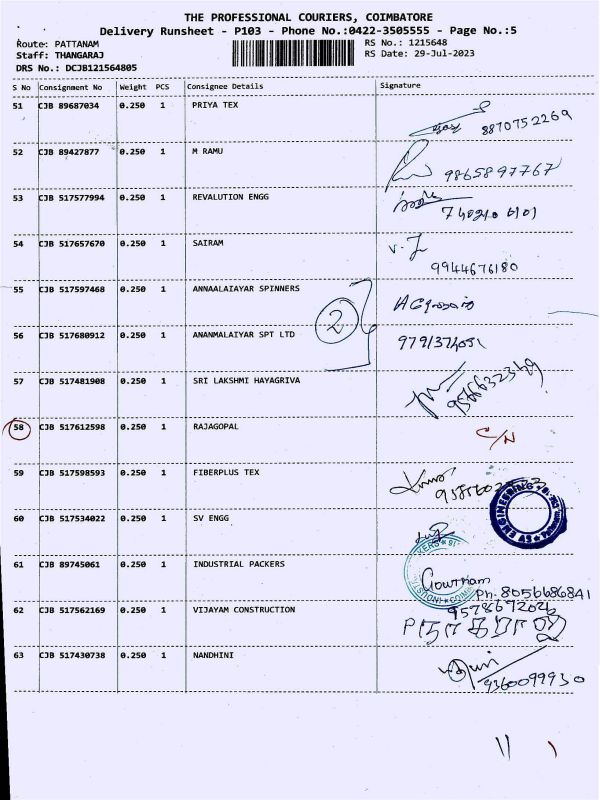 THE PROFESSIONAL COURIERS, COIMBATORE
Delivery Runsheet - P103 - Phone No.:0422-3505555 - Page No.:5
Route: PATTANAM RS No.: 1215648
Staff: THANGARAJ RS Date: 29-Jul-2023
DRS No.: DCJB121564805
S No Consignment No Weight PCS Consignee Details Signature
51 CJB 89687034 0.250 1 PRIYA TEX
8870752269
52 CJB 89427877 0.250 1 M RAMU
9865897767
53 CJB 517577994 0.250 1 REVALUTION ENGG
54 CJB 517657670 0.250 1 SAIRAM
9944676180
55 CJB 517597468 0.250 1 ANNAALAIAYAR SPINNERS
2
56 CJB 517680912 0.250 1 ANANMALAIYAR SPT LTD
57 CJB 517481908 0.250 1 SRI LAKSHMI HAYAGRIVA
9566632369
58 CJB 517612598 0.250 1 RAJAGOPAL C/N
59 CJB 517598593 0.250 1 FIBERPLUS TEX
60 CJB 517534022 0.250 1 SV ENGG
61 CJB 89745061 0.250 1 INDUSTRIAL PACKERS
Gowtham
Ph. 8056686841
62 CJB 517562169 0.250 1 VIJAYAM CONSTRUCTION
P நாகராஜ்
63 CJB 517430738 0.250 1 NANDHINI
9360099930